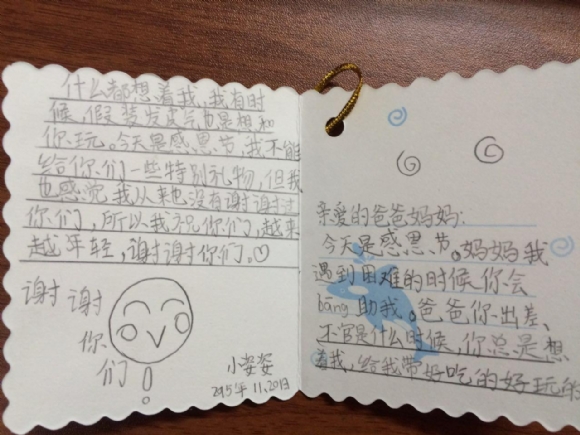 亲爱的爸爸妈妈:
今天是感恩节。妈妈我
遇到困难的时候你会
bāng助我。爸爸你出差、
不官是什么时候,你总是想
着我,给我带好吃的好玩的
什么都想着我,我有时
候,假装发皮气也是想和
你玩。今天是感恩节,我不能
给你们一些特别礼物,但我
也感觉我从来也没有谢谢过
你们,所以我祝你们越来
越年轻,谢谢你们。♡
谢谢
你
们!
小姿姿
2015年11.20日